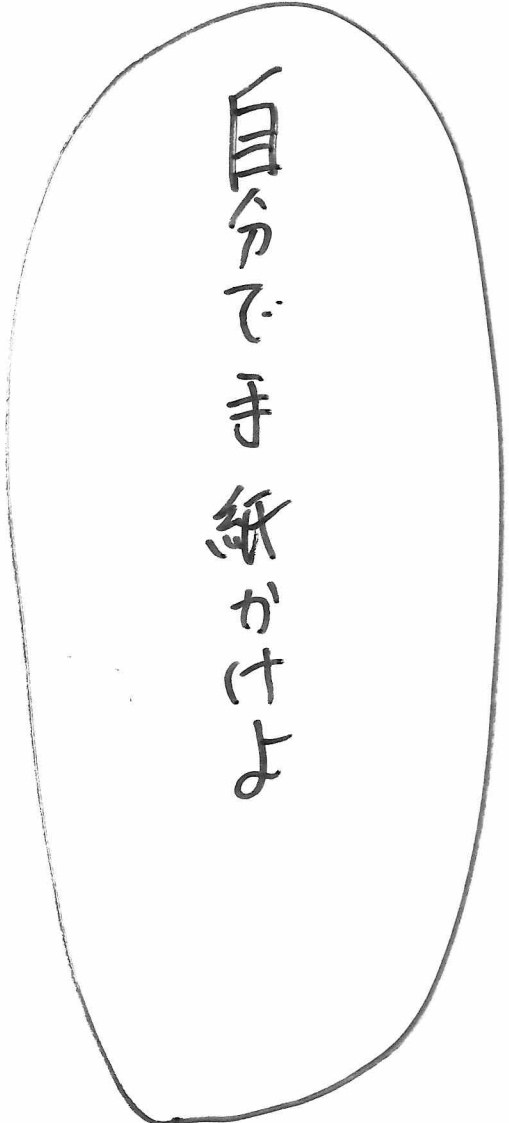 自分で手紙かけよ